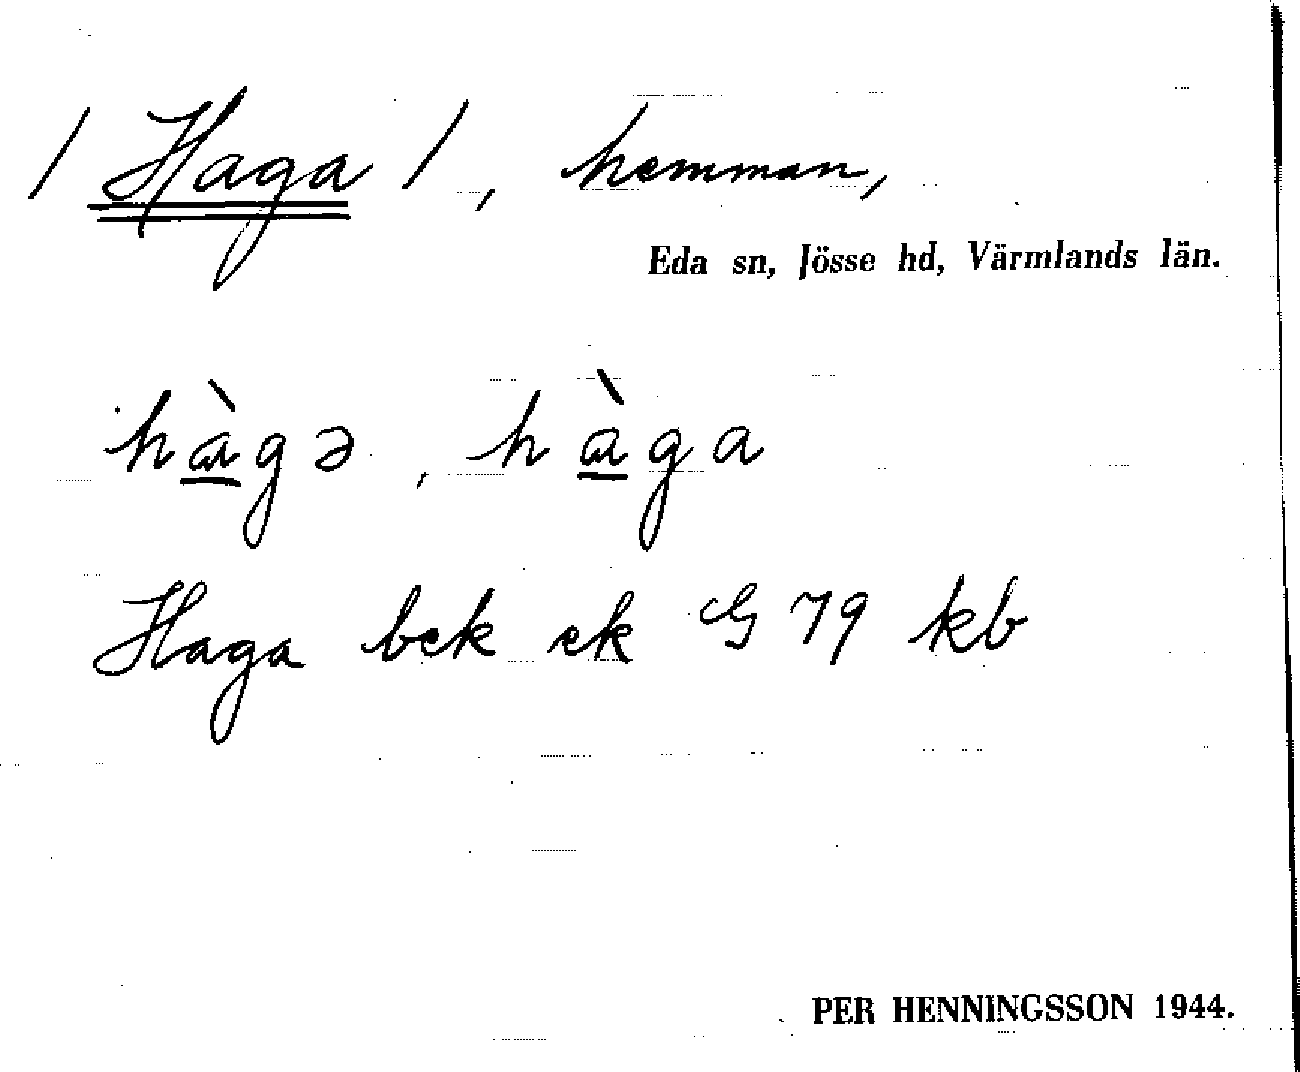 / Haga /, hemman,
Eda sn, Jösse hd, Värmlands län.
hɑ̲̀gə, hɑ̲̀ga
Haga bek ek G 79 kb
PER HENNINGSSON 1944.